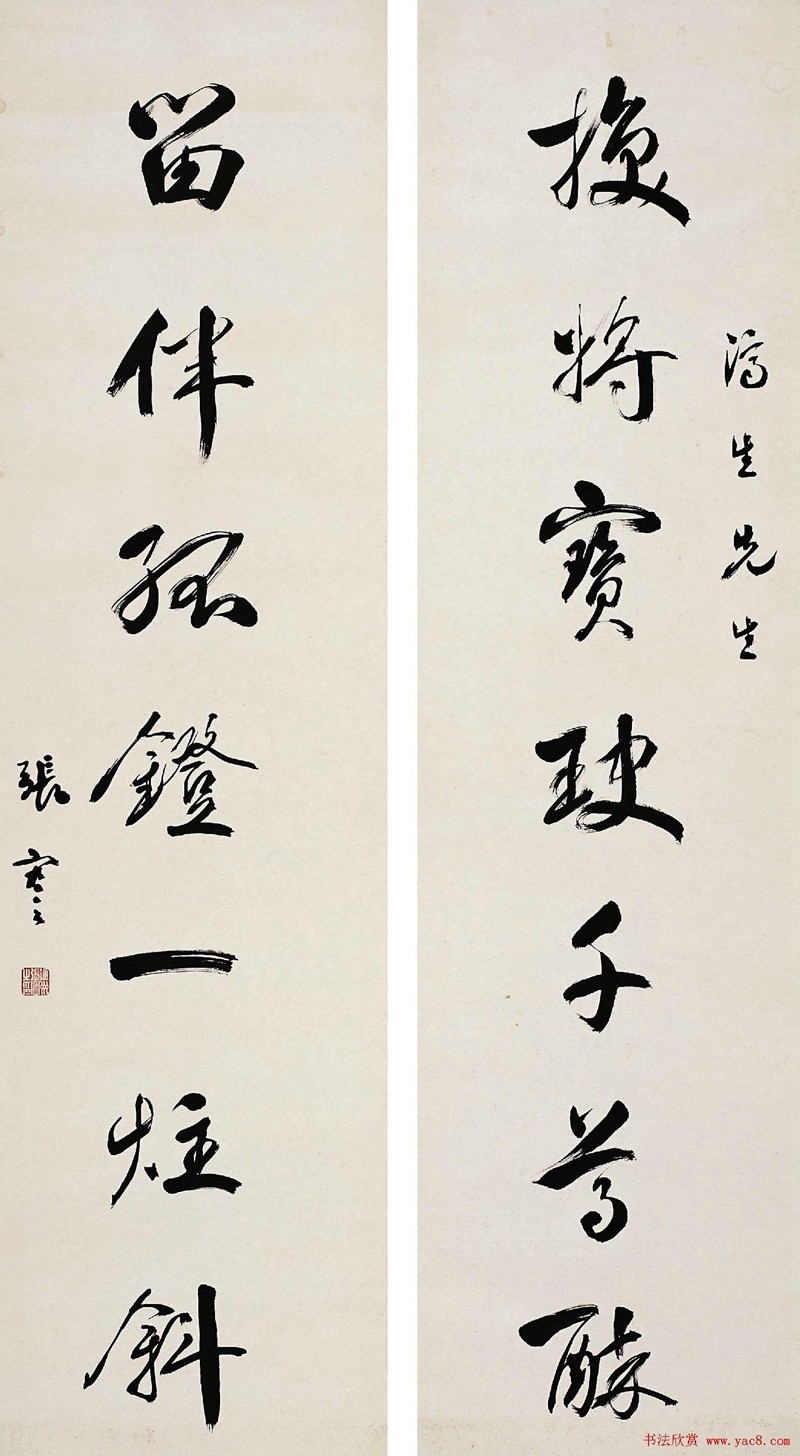 濤生先生
換將寶玦千尊醉
留伴孤鐙一炷斜
張謇
书法欣赏 www.yac8.com